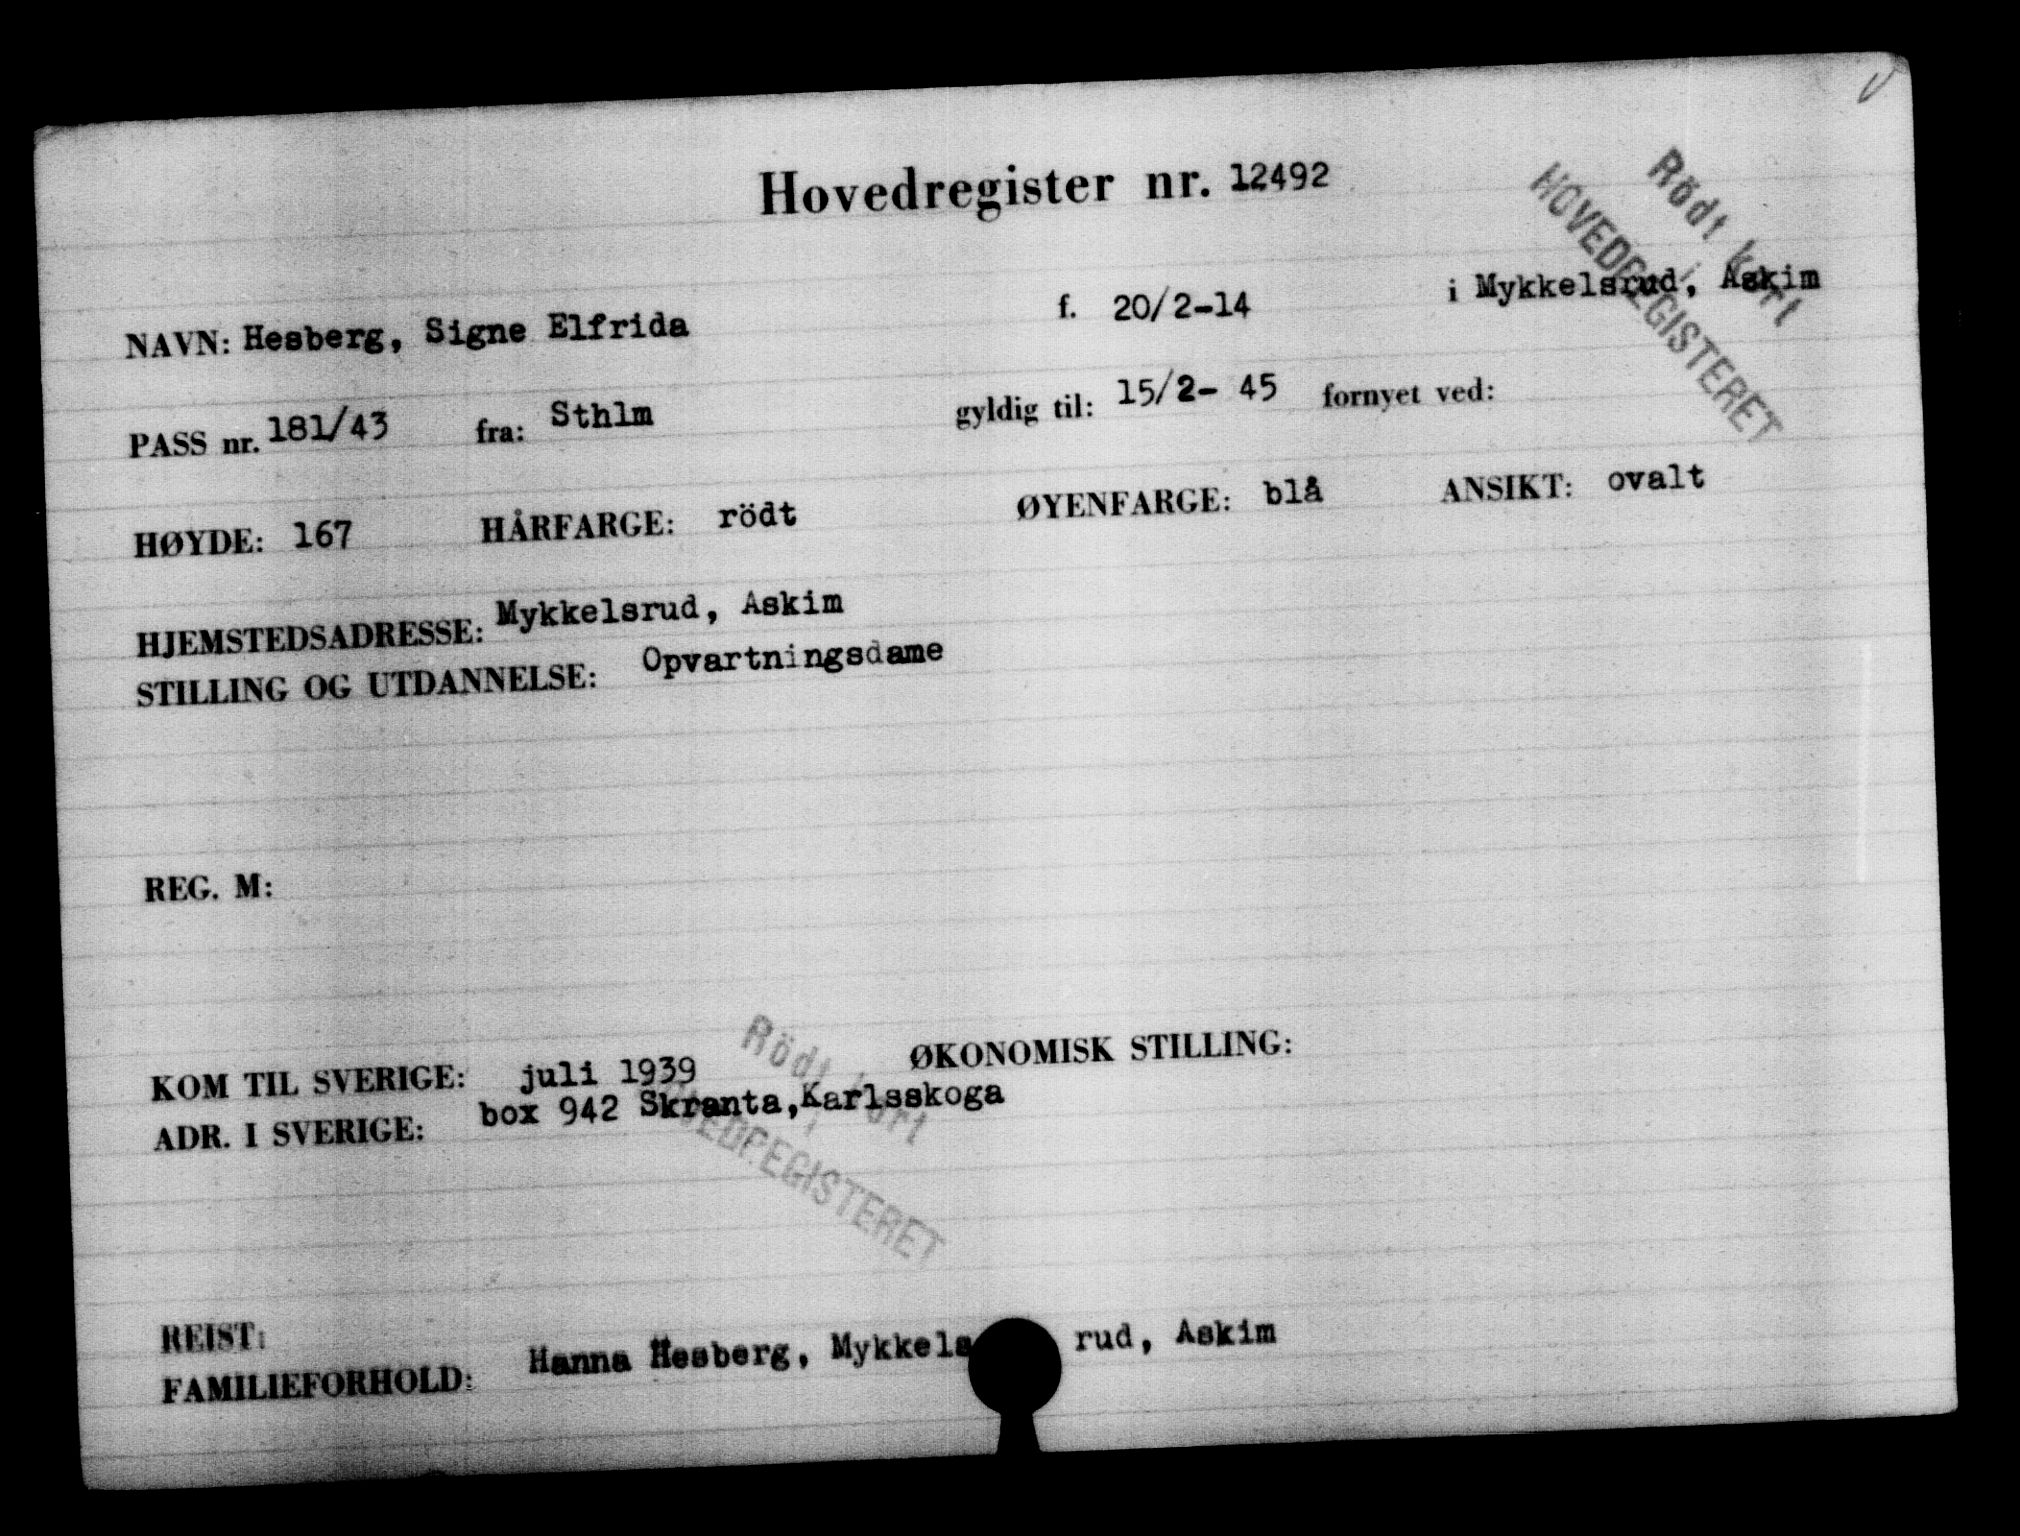 Hovedregister nr. 12492
Rödt kort
i
HOVEDREGISTERET
NAVN: Hesberg, Signe Elfrida f. 20/2-14 i Mykkelsrud, Askim
PASS nr. 181/43 fra: Sthlm gyldig til: 15/2- 45 fornyet ved:
HØYDE: 167 HÅRFARGE: rödt ØYENFARGE: blå ANSIKT: ovalt
HJEMSTEDSADRESSE: Mykkelsrud, Askim
STILLING OG UTDANNELSE: Opvartningsdame
REG. M:
KOM TIL SVERIGE: juli 1939 ØKONOMISK STILLING:
ADR. I SVERIGE: box 942 Skranta,Karlsskoga
Rödt kort
i
HOVEDREGISTERET
REIST:
FAMILIEFORHOLD: Hanna Hesberg, Mykkels rud, Askim